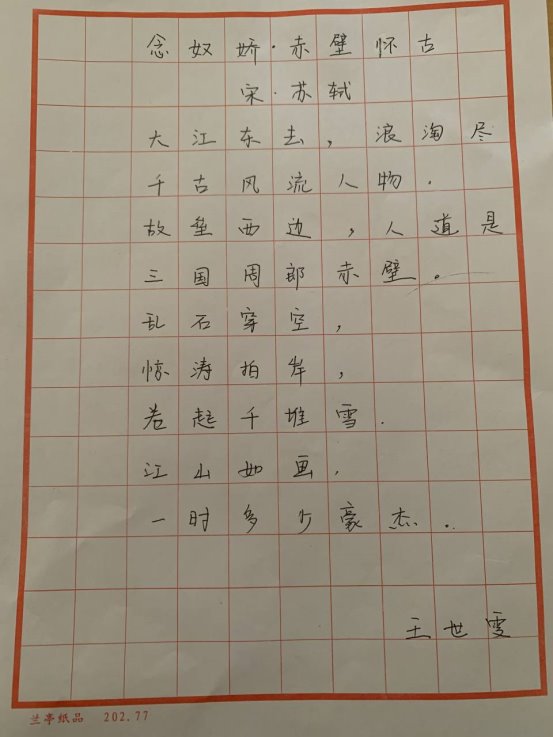 念奴娇·赤壁怀古
宋·苏轼
大江东去,浪淘尽
千古风流人物.
故垒西边,人道是
三国周郎赤壁。
乱石穿空,
惊涛拍岸,
卷起千堆雪.
江山如画,
一时多少豪杰.
王世雯
兰亭纸品 202.77